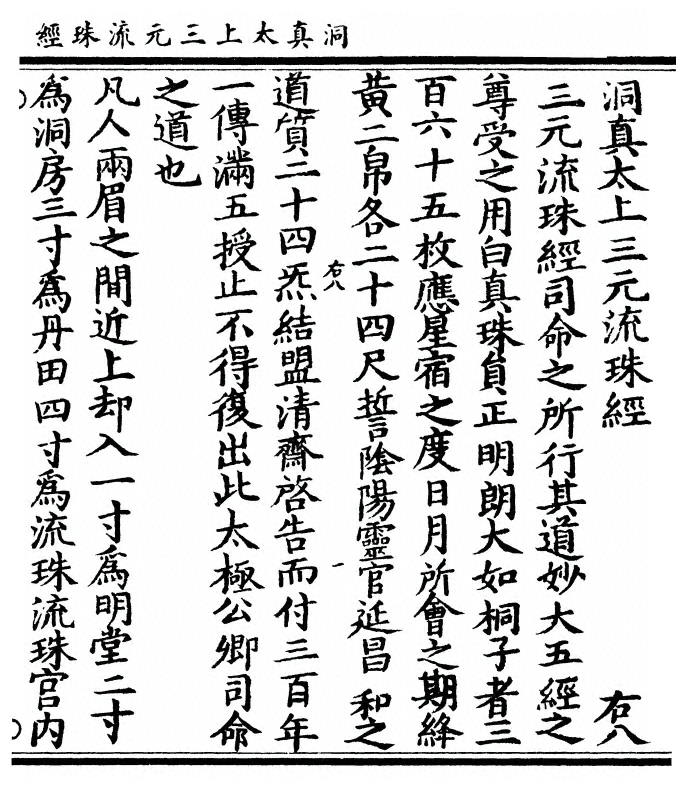 洞真太上三元流珠經
洞真太上三元流珠經 右八
三元流珠經司命之所行其道妙大五經之
尊受之用白真珠負正明朗大如桐子者三
百六十五枚應星宿之度日月所會之期絳
黃二帛各二十四尺誓隂陽靈官延昌 和之
道質二十四炁結盟清齋啓告而付三百年
右八
一傳滿五授止不得復出此太極公卿司命
之道也
凡人兩眉之間近上却入一寸爲明堂二寸
爲洞房三寸爲丹田四寸爲流珠流珠宫内